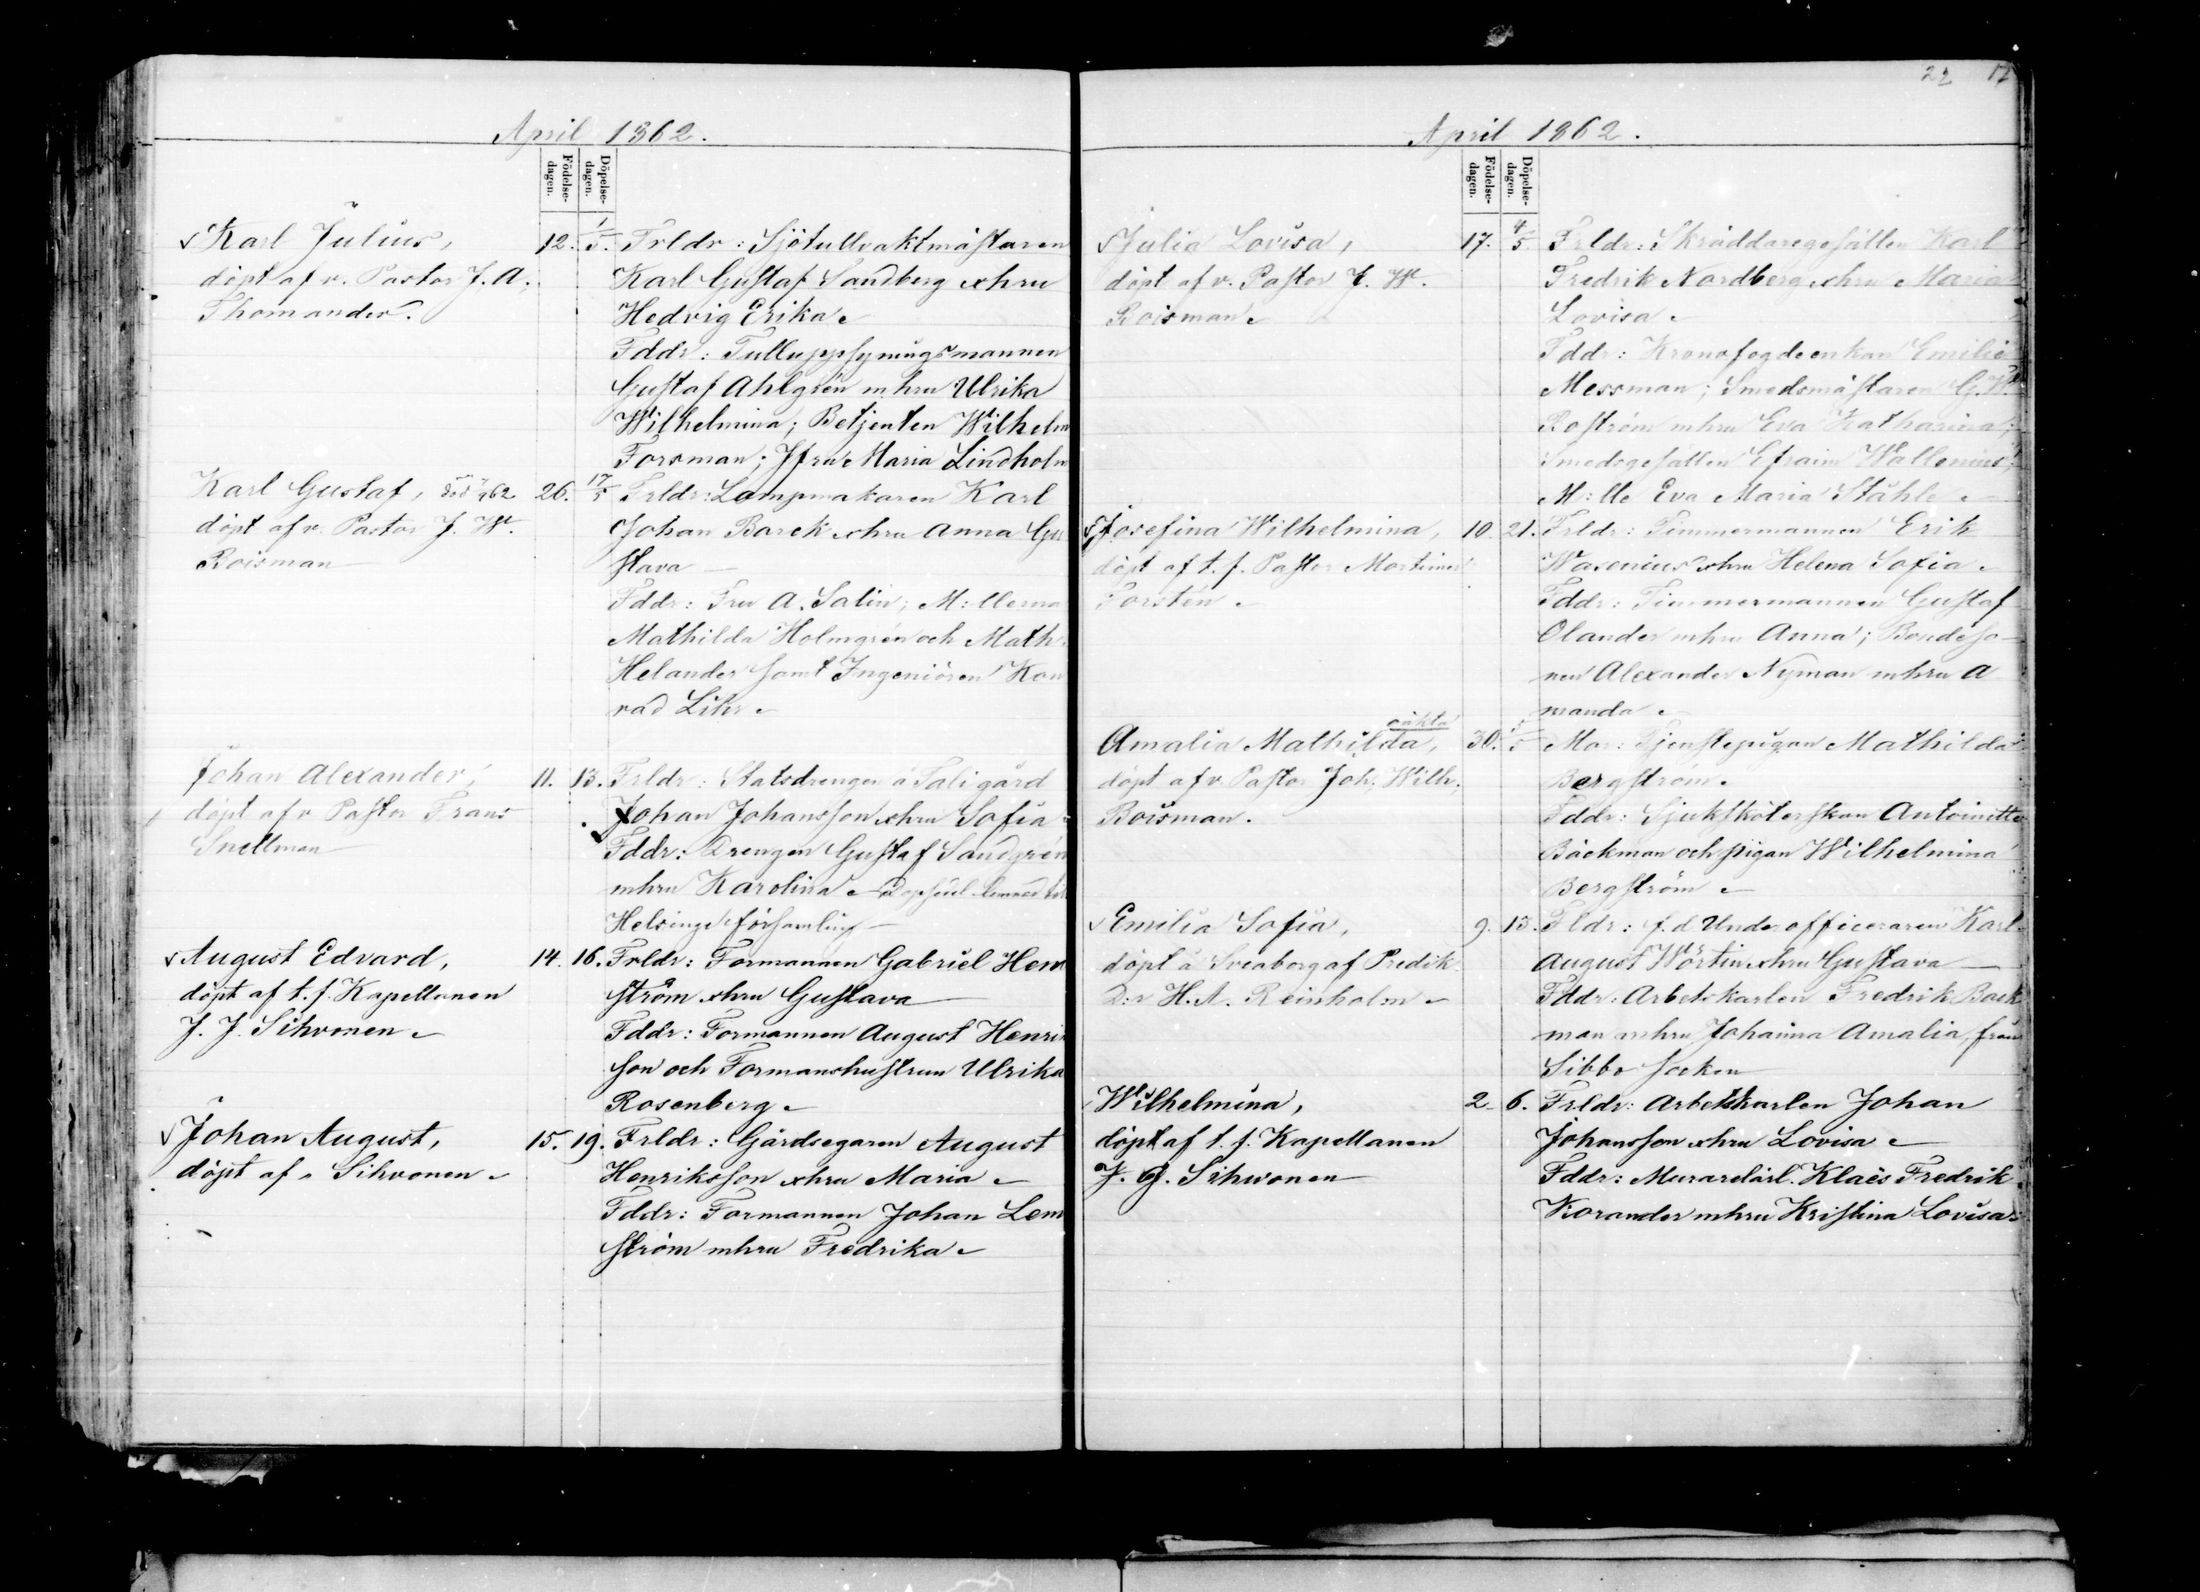 22 17
April 1862.
Födelse-dagen.
Döpelse-dagen.
Karl Julius,
döpt af v. Pastor J. A.
Thomander.
12. 1/5. Frldr: Sjötullvaktmästaren
Karl Gustaf Sandberg o hru
Hedvig Erika
Fddr: Tulluppsyningsmannen
Gustaf Ahlgrén m hru Ulrika
Wilhelmina; Betjenten Wilhelm
Forsman; Jfru Maria Lindholm
Karl Gustaf, död 62
döpt af v. Pastor J. W.
Roisman
26. 17/5 Frldr: Lampmakaren Karl
Johan Barck o hru Anna Gu
stava
Fddr: Fru A. Salin; M:llerna
Mathilda Holmgrén och Math.
Helander samt Ingeniören Kon
rad Lihr
Johan Alexander,
döpt af v. Pastor Frans
Snellman
11. 13. Frldr: Statsdrengen å Tali gård
Johan Johansson o hru Sofia
Fddr: Drengen Gustaf Sandgrén
m hru Karolina
Helsinge församling
August Edvard,
döpt af t. f. Kapellanen
J. J. Sihvonen
14. 16. Frldr: Formannen Gabriel Hem
ström o hru Gustava
Fddr: Formannen August Henrik
son och Formanshustrun Ulrika
Rosenberg
Johan August,
döpt af " Sihvonen
15. 19. Frldr: Gårdsegaren August
Henriksson o hru Maria
Fddr: Formannen Johan Lem
ström m hru Fredrika
April 1862.
Födelse-dagen.
Döpelse-dagen.
Julia Lovisa,
döpt af v. Pastor J. W.
Roisman
17. 4/5 Frldr: Skräddaregesällen Karl
Fredrik Nordberg o hru Maria
Lovisa
Fddr: Kronofogdeenkan Emilie
Messman; Smedsmästaren G. W.
Roström m hru Eva Katharina;
Smedsgesällen Efraim Wallenius;
M:lle Eva Maria Ståhle
Josefina Wilhelmina,
döpt af t. f. Pastor Mortimer
Forstén
10. 21. Frldr: Timmermannen Erik
Wasenius o hru Helena Sofia
Fddr: Timmermannen Gustaf
Olander m hru Anna; Bondeso
nen Alexander Nyman m hru A
manda
oäkta
Amalia Mathilda,
döpt af v. Pastor Joh. Wilh.
Roisman.
30. 5/5 Mor: Tjenstepigan Mathilda
Bergström
Fddr: Sjuksköterskan Antoinette
Bäckman och pigan Wilhelmina
Bergström
Emilia Sofia,
döpt å Sveaborg af Predik.
D:r H. A. Reinholm
9. 13. Fldr: f. d Underofficeraren Karl
August Wörtin o hru Gustava
Fddr: Arbetskarlen Fredrik Back
man m hru Johanna Amalia, från
Sibbo socken
Wilhelmina,
döpt af t. f. Kapellanen
J. J. Sihwonen
2. 6. Frldr: Arbetskarlen Johan
Johansson o hru Lovisa
Fddr: Murarelärl. Klaës Fredrik
Korander m hru Kristina Lovisa